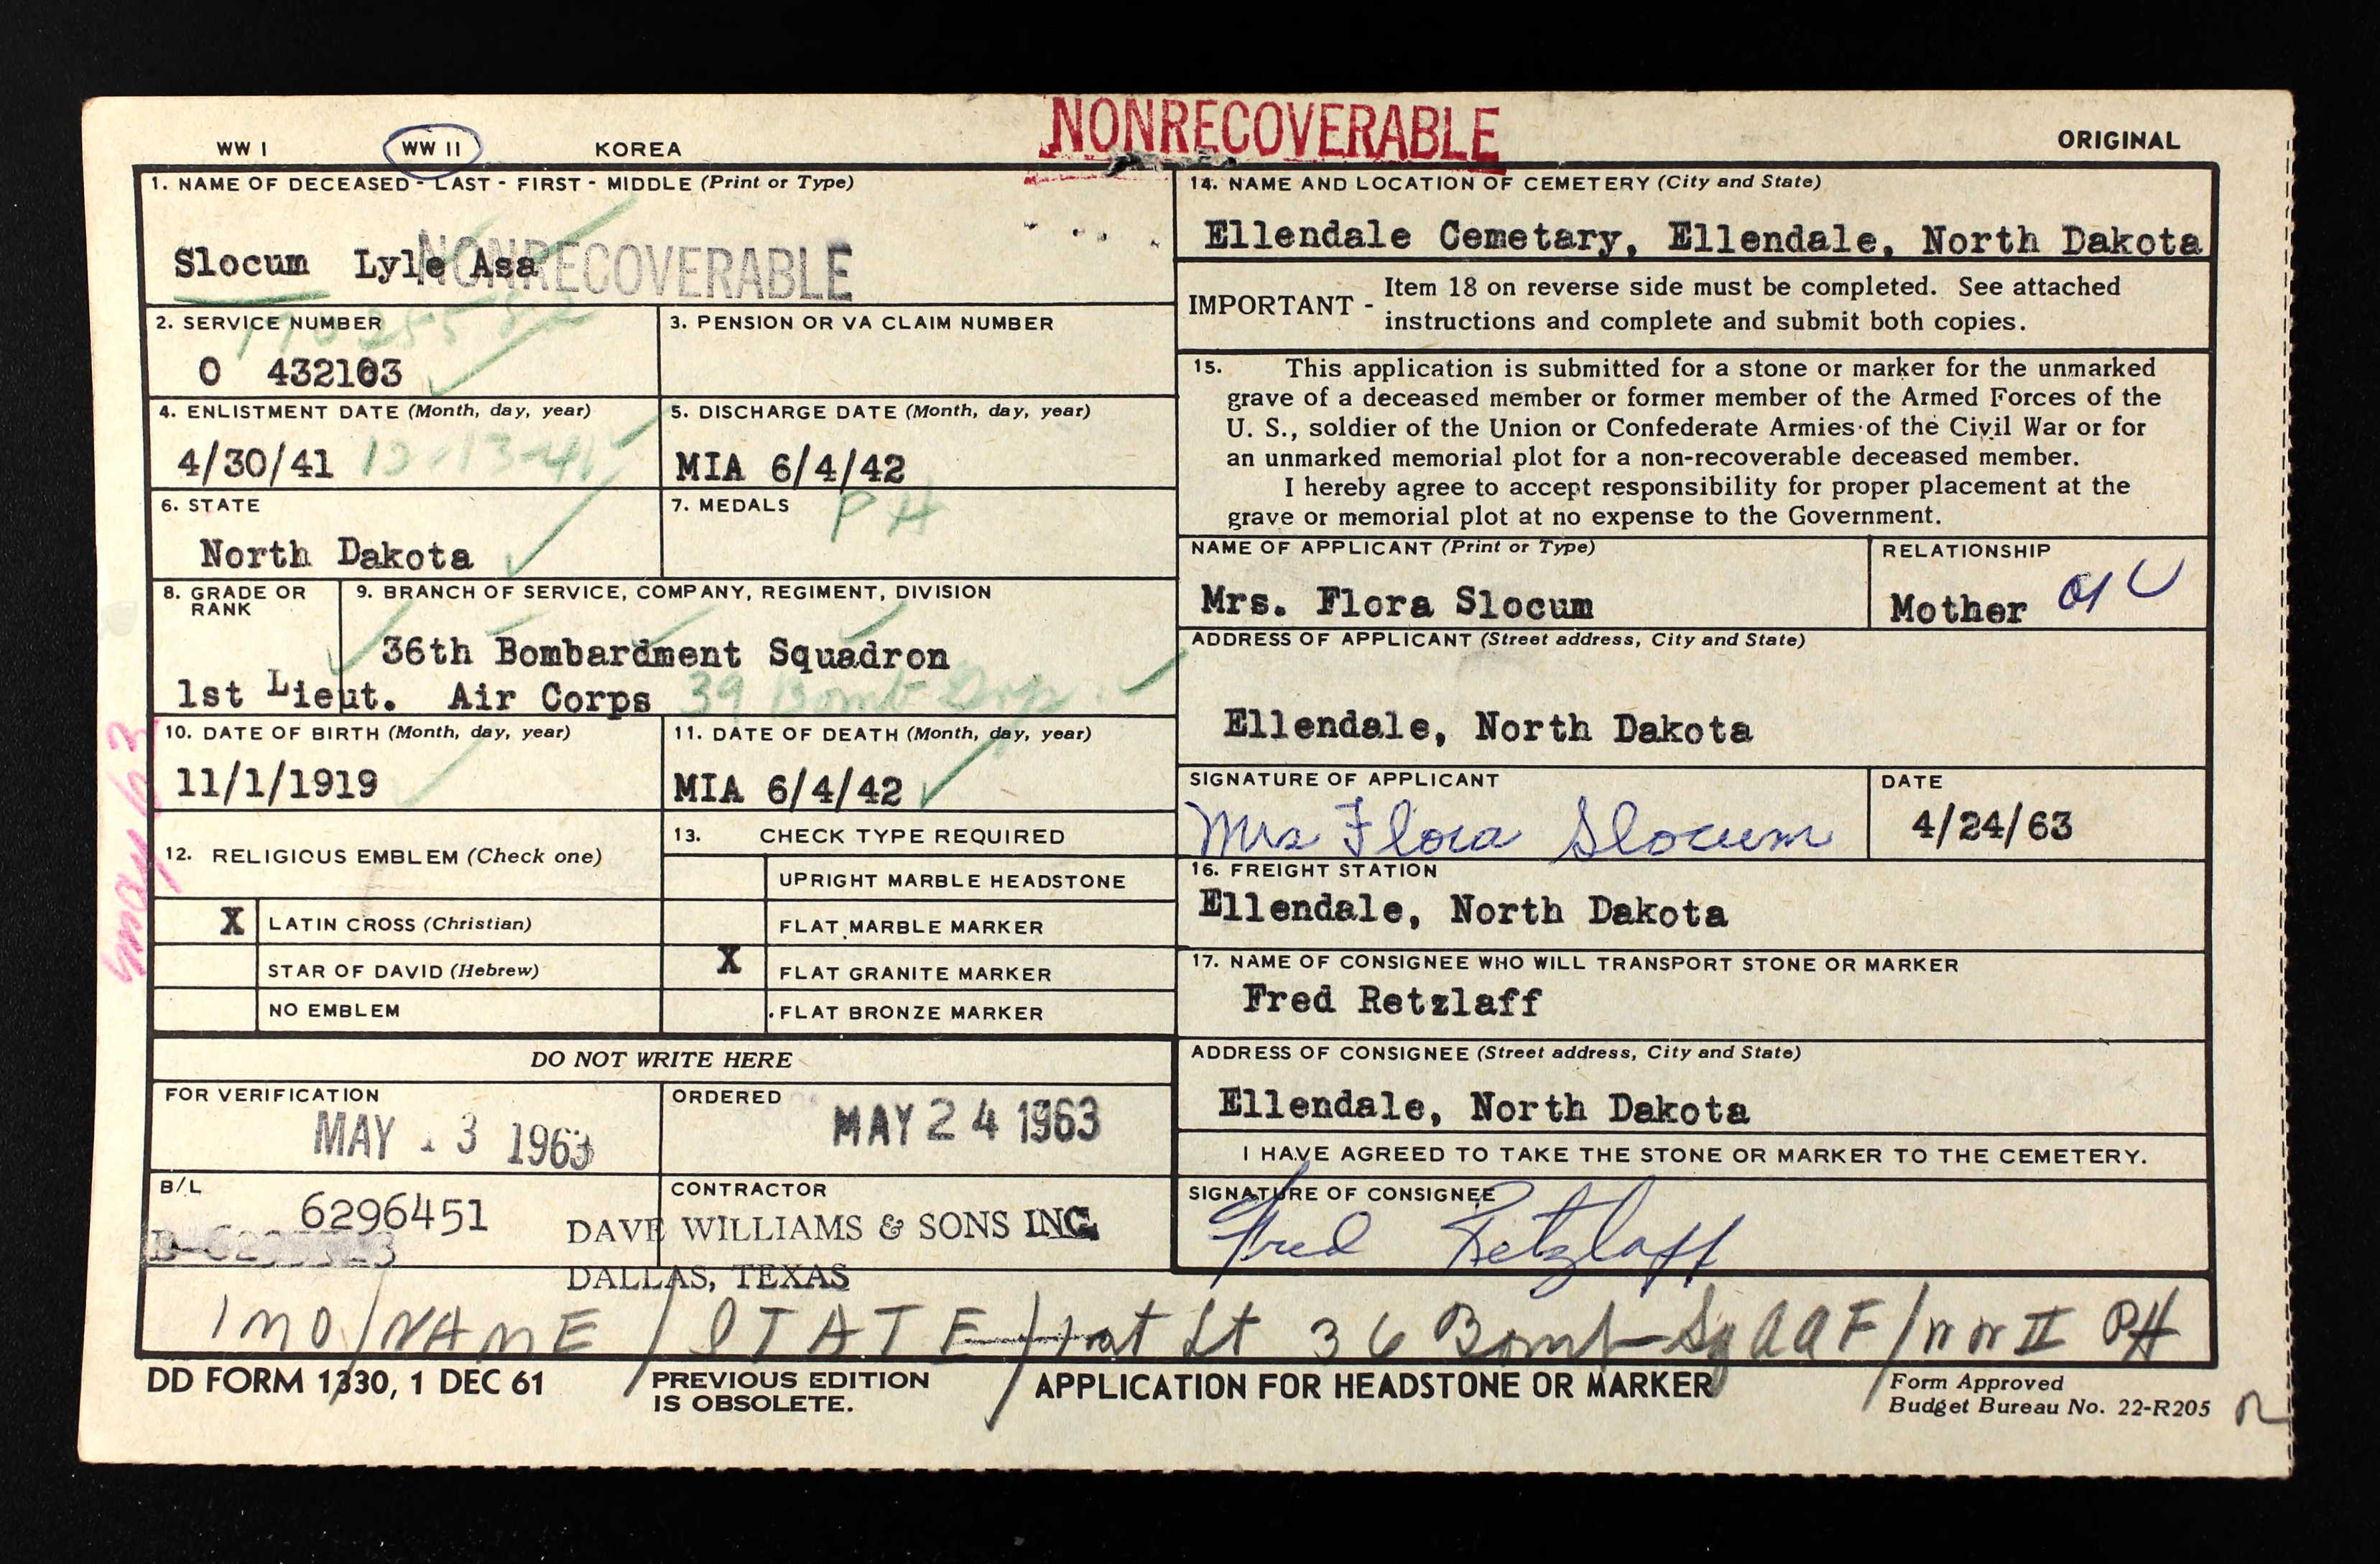 NONRECOVERABLE
WW I WW II KOREA ORIGINAL
1. NAME OF DECEASED - LAST - FIRST - MIDDLE (Print or Type)
Slocum Lyle Asa
NONRECOVERABLE
2. SERVICE NUMBER
O 432103
3. PENSION OR VA CLAIM NUMBER
4. ENLISTMENT DATE (Month, day, year)
4/30/41
5. DISCHARGE DATE (Month, day, year)
MIA 6/4/42
6. STATE
North Dakota
7. MEDALS
PH
8. GRADE OR
RANK
1st Lieut.
9. BRANCH OF SERVICE, COMPANY, REGIMENT, DIVISION
36th Bombardment Squadron
Air Corps 39 Bomb Grp.
10. DATE OF BIRTH (Month, day, year)
11/1/1919
11. DATE OF DEATH (Month, day, year)
MIA 6/4/42
May 63
12. RELIGIOUS EMBLEM (Check one)
X LATIN CROSS (Christian)
STAR OF DAVID (Hebrew)
NO EMBLEM
13. CHECK TYPE REQUIRED
UPRIGHT MARBLE HEADSTONE
FLAT MARBLE MARKER
X FLAT GRANITE MARKER
FLAT BRONZE MARKER
DO NOT WRITE HERE
FOR VERIFICATION
MAY 13 1963
ORDERED
MAY 24 1963
B/L
6296451
CONTRACTOR
DAVE WILLIAMS & SONS INC.
DALLAS, TEXAS
14. NAME AND LOCATION OF CEMETERY (City and State)
Ellendale Cemetary, Ellendale, North Dakota
IMPORTANT - Item 18 on reverse side must be completed. See attached
instructions and complete and submit both copies.
15. This application is submitted for a stone or marker for the unmarked
grave of a deceased member or former member of the Armed Forces of the
U. S., soldier of the Union or Confederate Armies of the Civil War or for
an unmarked memorial plot for a non-recoverable deceased member.
I hereby agree to accept responsibility for proper placement at the
grave or memorial plot at no expense to the Government.
NAME OF APPLICANT (Print or Type)
Mrs. Flora Slocum
RELATIONSHIP
Mother
ADDRESS OF APPLICANT (Street address, City and State)
Ellendale, North Dakota
SIGNATURE OF APPLICANT
Mrs Flora Slocum
DATE
4/24/63
16. FREIGHT STATION
Ellendale, North Dakota
17. NAME OF CONSIGNEE WHO WILL TRANSPORT STONE OR MARKER
Fred Retzlaff
ADDRESS OF CONSIGNEE (Street address, City and State)
Ellendale, North Dakota
I HAVE AGREED TO TAKE THE STONE OR MARKER TO THE CEMETERY.
SIGNATURE OF CONSIGNEE
Fred Retzlaff
IMO/NAME/STATE/1st Lt 36 Bomb Sq AAF/WW II PH
DD FORM 1330, 1 DEC 61
PREVIOUS EDITION
IS OBSOLETE.
APPLICATION FOR HEADSTONE OR MARKER
Form Approved
Budget Bureau No. 22-R205